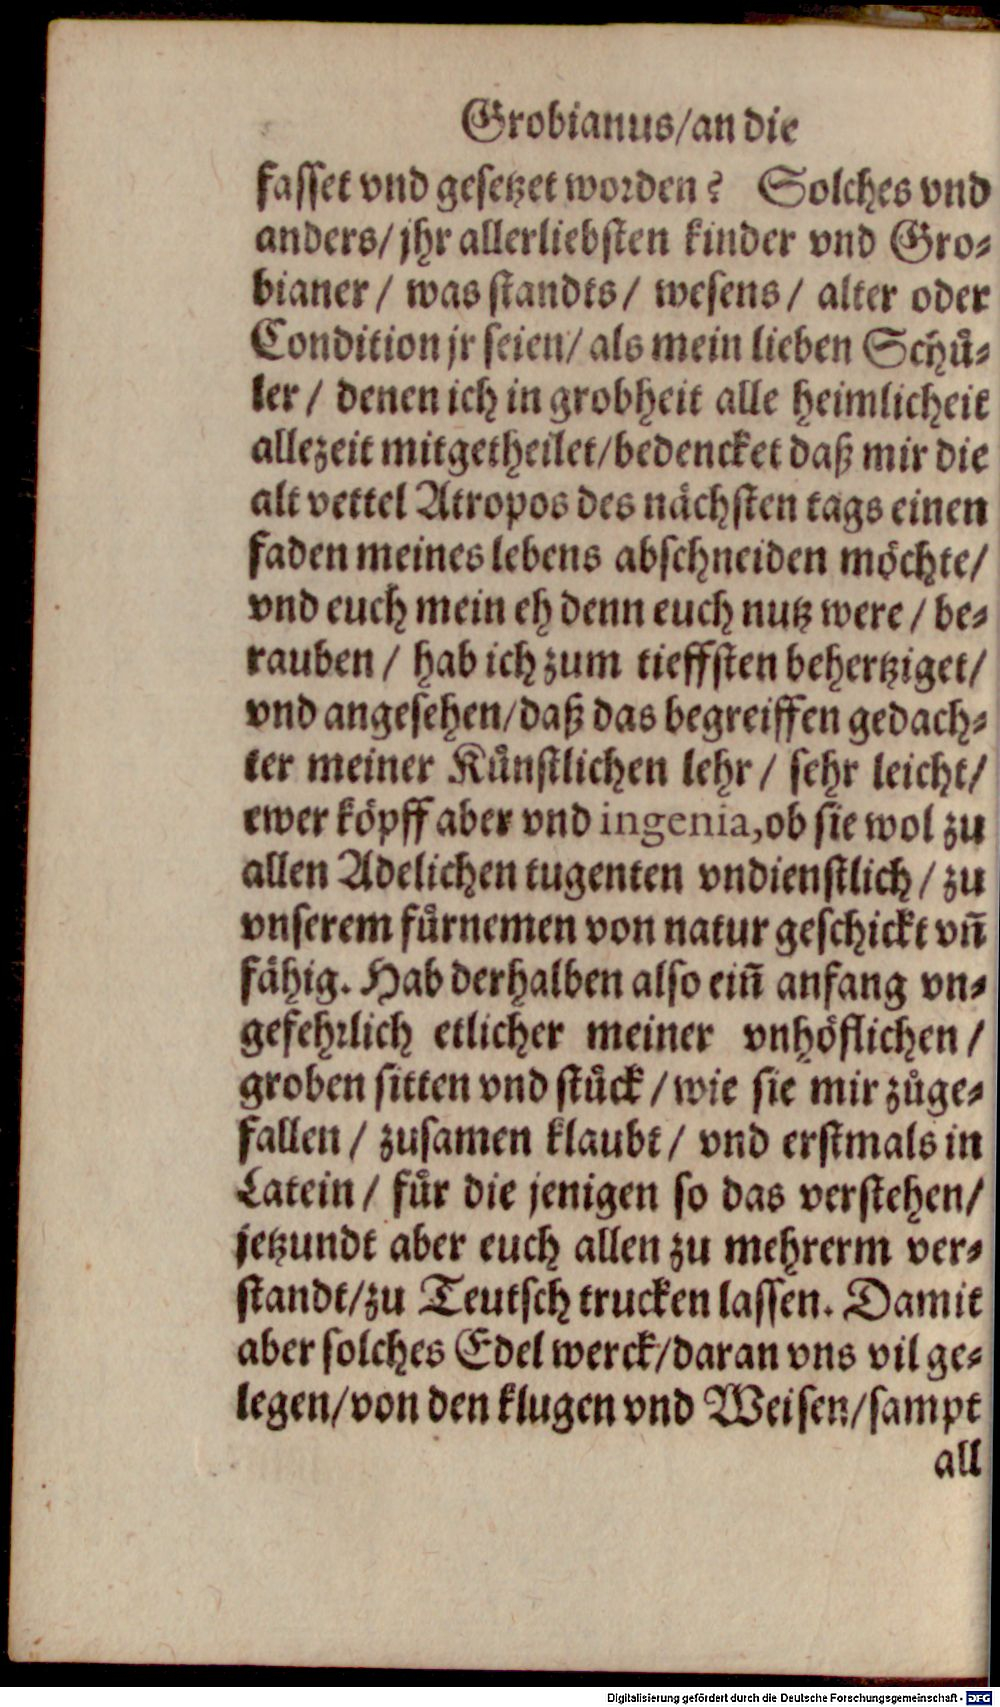 Grobianus/an die
fasset vnd gesetzet worden? Solches vnd
anders/jhr allerliebsten kinder vnd Gro⸗
bianer/ was standts/ wesens/ alter oder
Condition jr seien/ als mein lieben Schuͤ⸗
ler/ denen ich in grobheit alle heimlicheit
allezeit mitgetheilet/bedencket daß mir die
alt vettel Atropos des naͤchsten tags einen
faden meines lebens abschneiden moͤchte/
vnd euch mein eh denn euch nutz were/ be⸗
rauben/ hab ich zum tieffsten behertziget/
vnd angesehen/daß das begreiffen gedach⸗
ter meiner Kuͤnstlichen lehr/ sehr leicht/
ewer koͤpff aber vnd ingenia,ob sie wol zu
allen Adelichen tugenten vndienstlich/ zu
vnserem fuͤrnemen von natur geschickt vñ
faͤhig. Hab derhalben also eiñ anfang vn⸗
gefehrlich etlicher meiner vnhoͤflichen/
groben sitten vnd stuͤck/wie sie mir zůge⸗
fallen/ zusamen klaubt/ vnd erstmals in
Latein/ fuͤr die jenigen so das verstehen/
jetzundt aber euch allen zu mehrerm ver⸗
standt/zu Teutsch trucken lassen. Damit
aber solches Edel werck/daran vns vil ge⸗
legen/von den klugen vnd Weisen/sampt
all
Digitalisierung gefördert durch die Deutsche Forschungsgemeinschaft - DFG